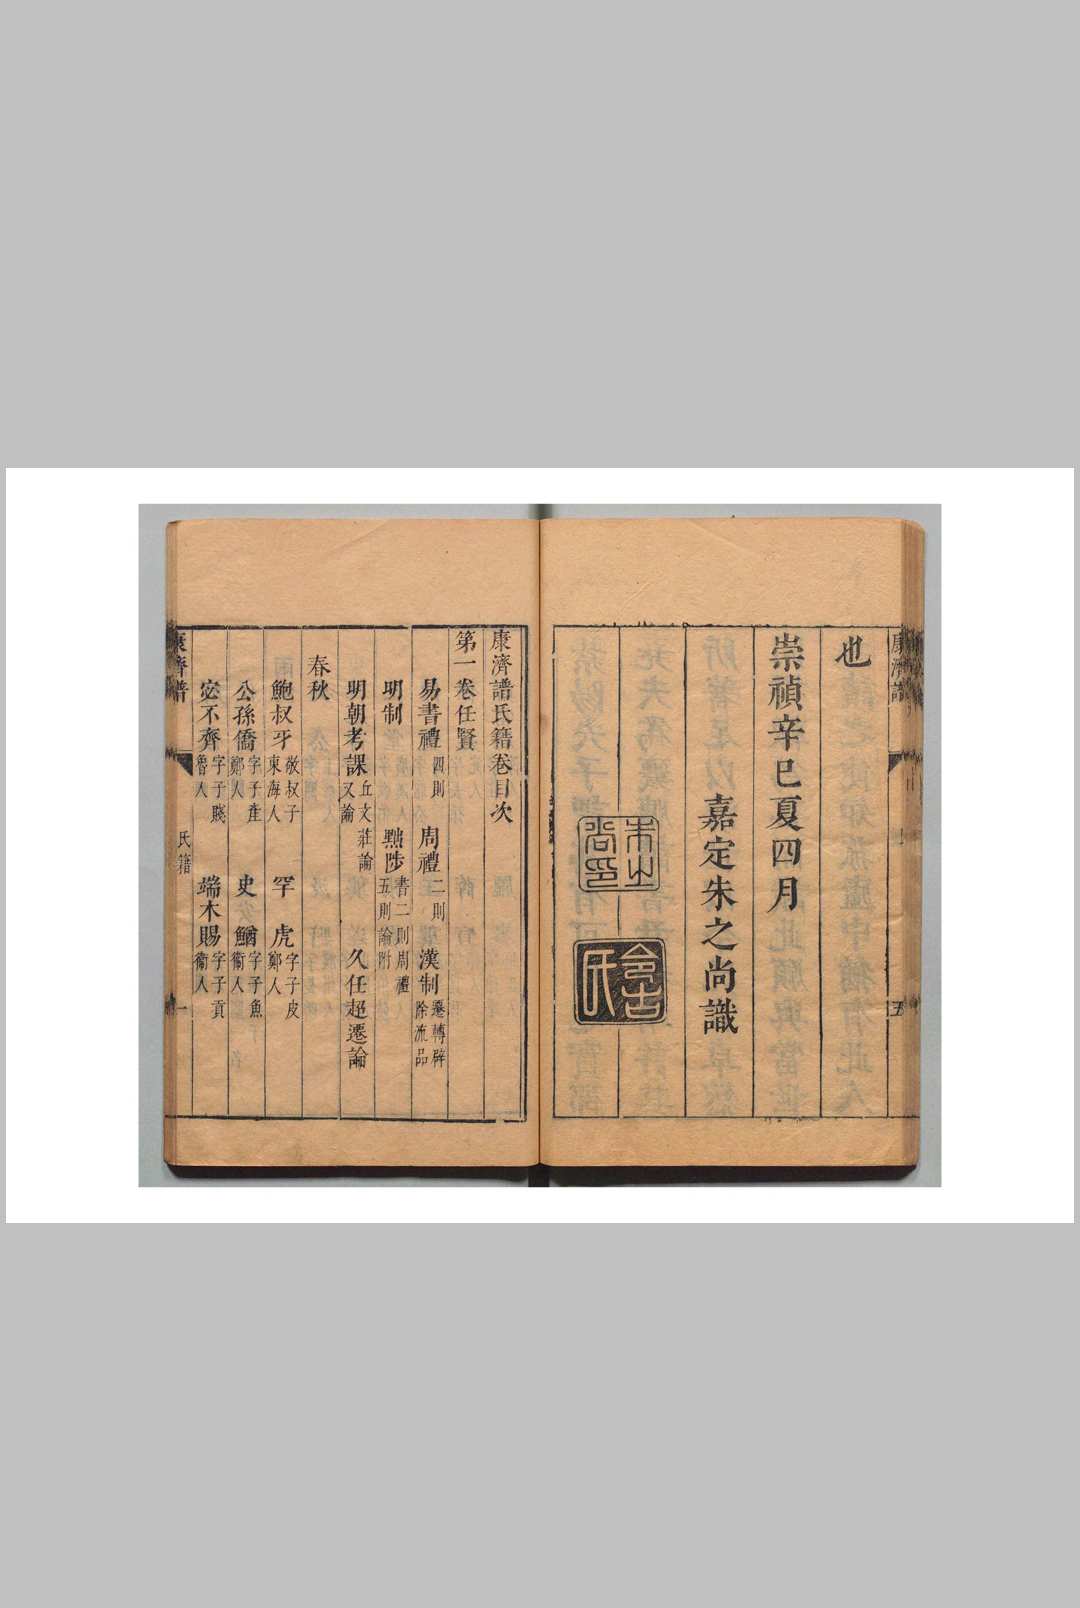 康濟譜
五
也
崇禎辛巳夏四月
嘉定朱之尚識
朱之尚印
康濟譜氏籍卷目次
第一卷任賢
易書禮四則 周禮二則 漢制遷轉辟除流品
明制 黜陟書二則周禮五則論附
明朝考課丘文莊論又論 久任超遷論
春秋
鮑叔牙敬叔子東海人 罕虎字子皮鄭人
公孫僑字子產鄭人 史鰌字子魚衞人
宓不齊字子賤魯人 端木賜字子貢衞人
康濟譜 氏籍 一